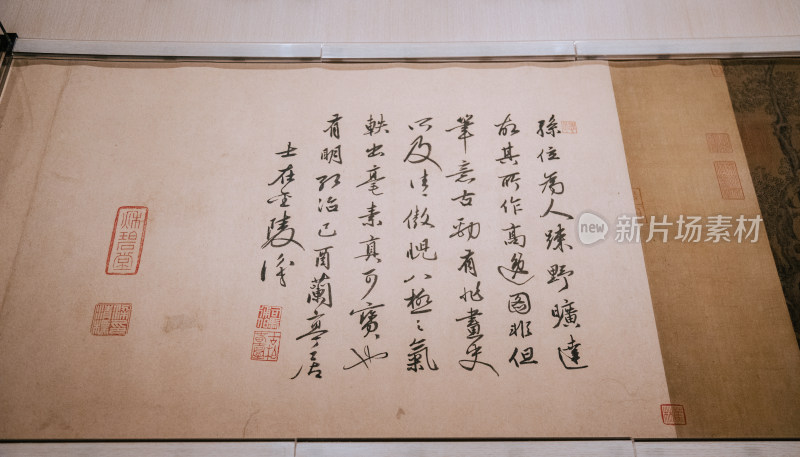 孫位為人疎野曠達
故其所作高逸圖非但
筆意古勁有非畫史
所及清傲睨八極之氣
軼出毫素真可寶也
有明弘治己酉蘭亭居
士在金陵識
碧堂
新片场素材